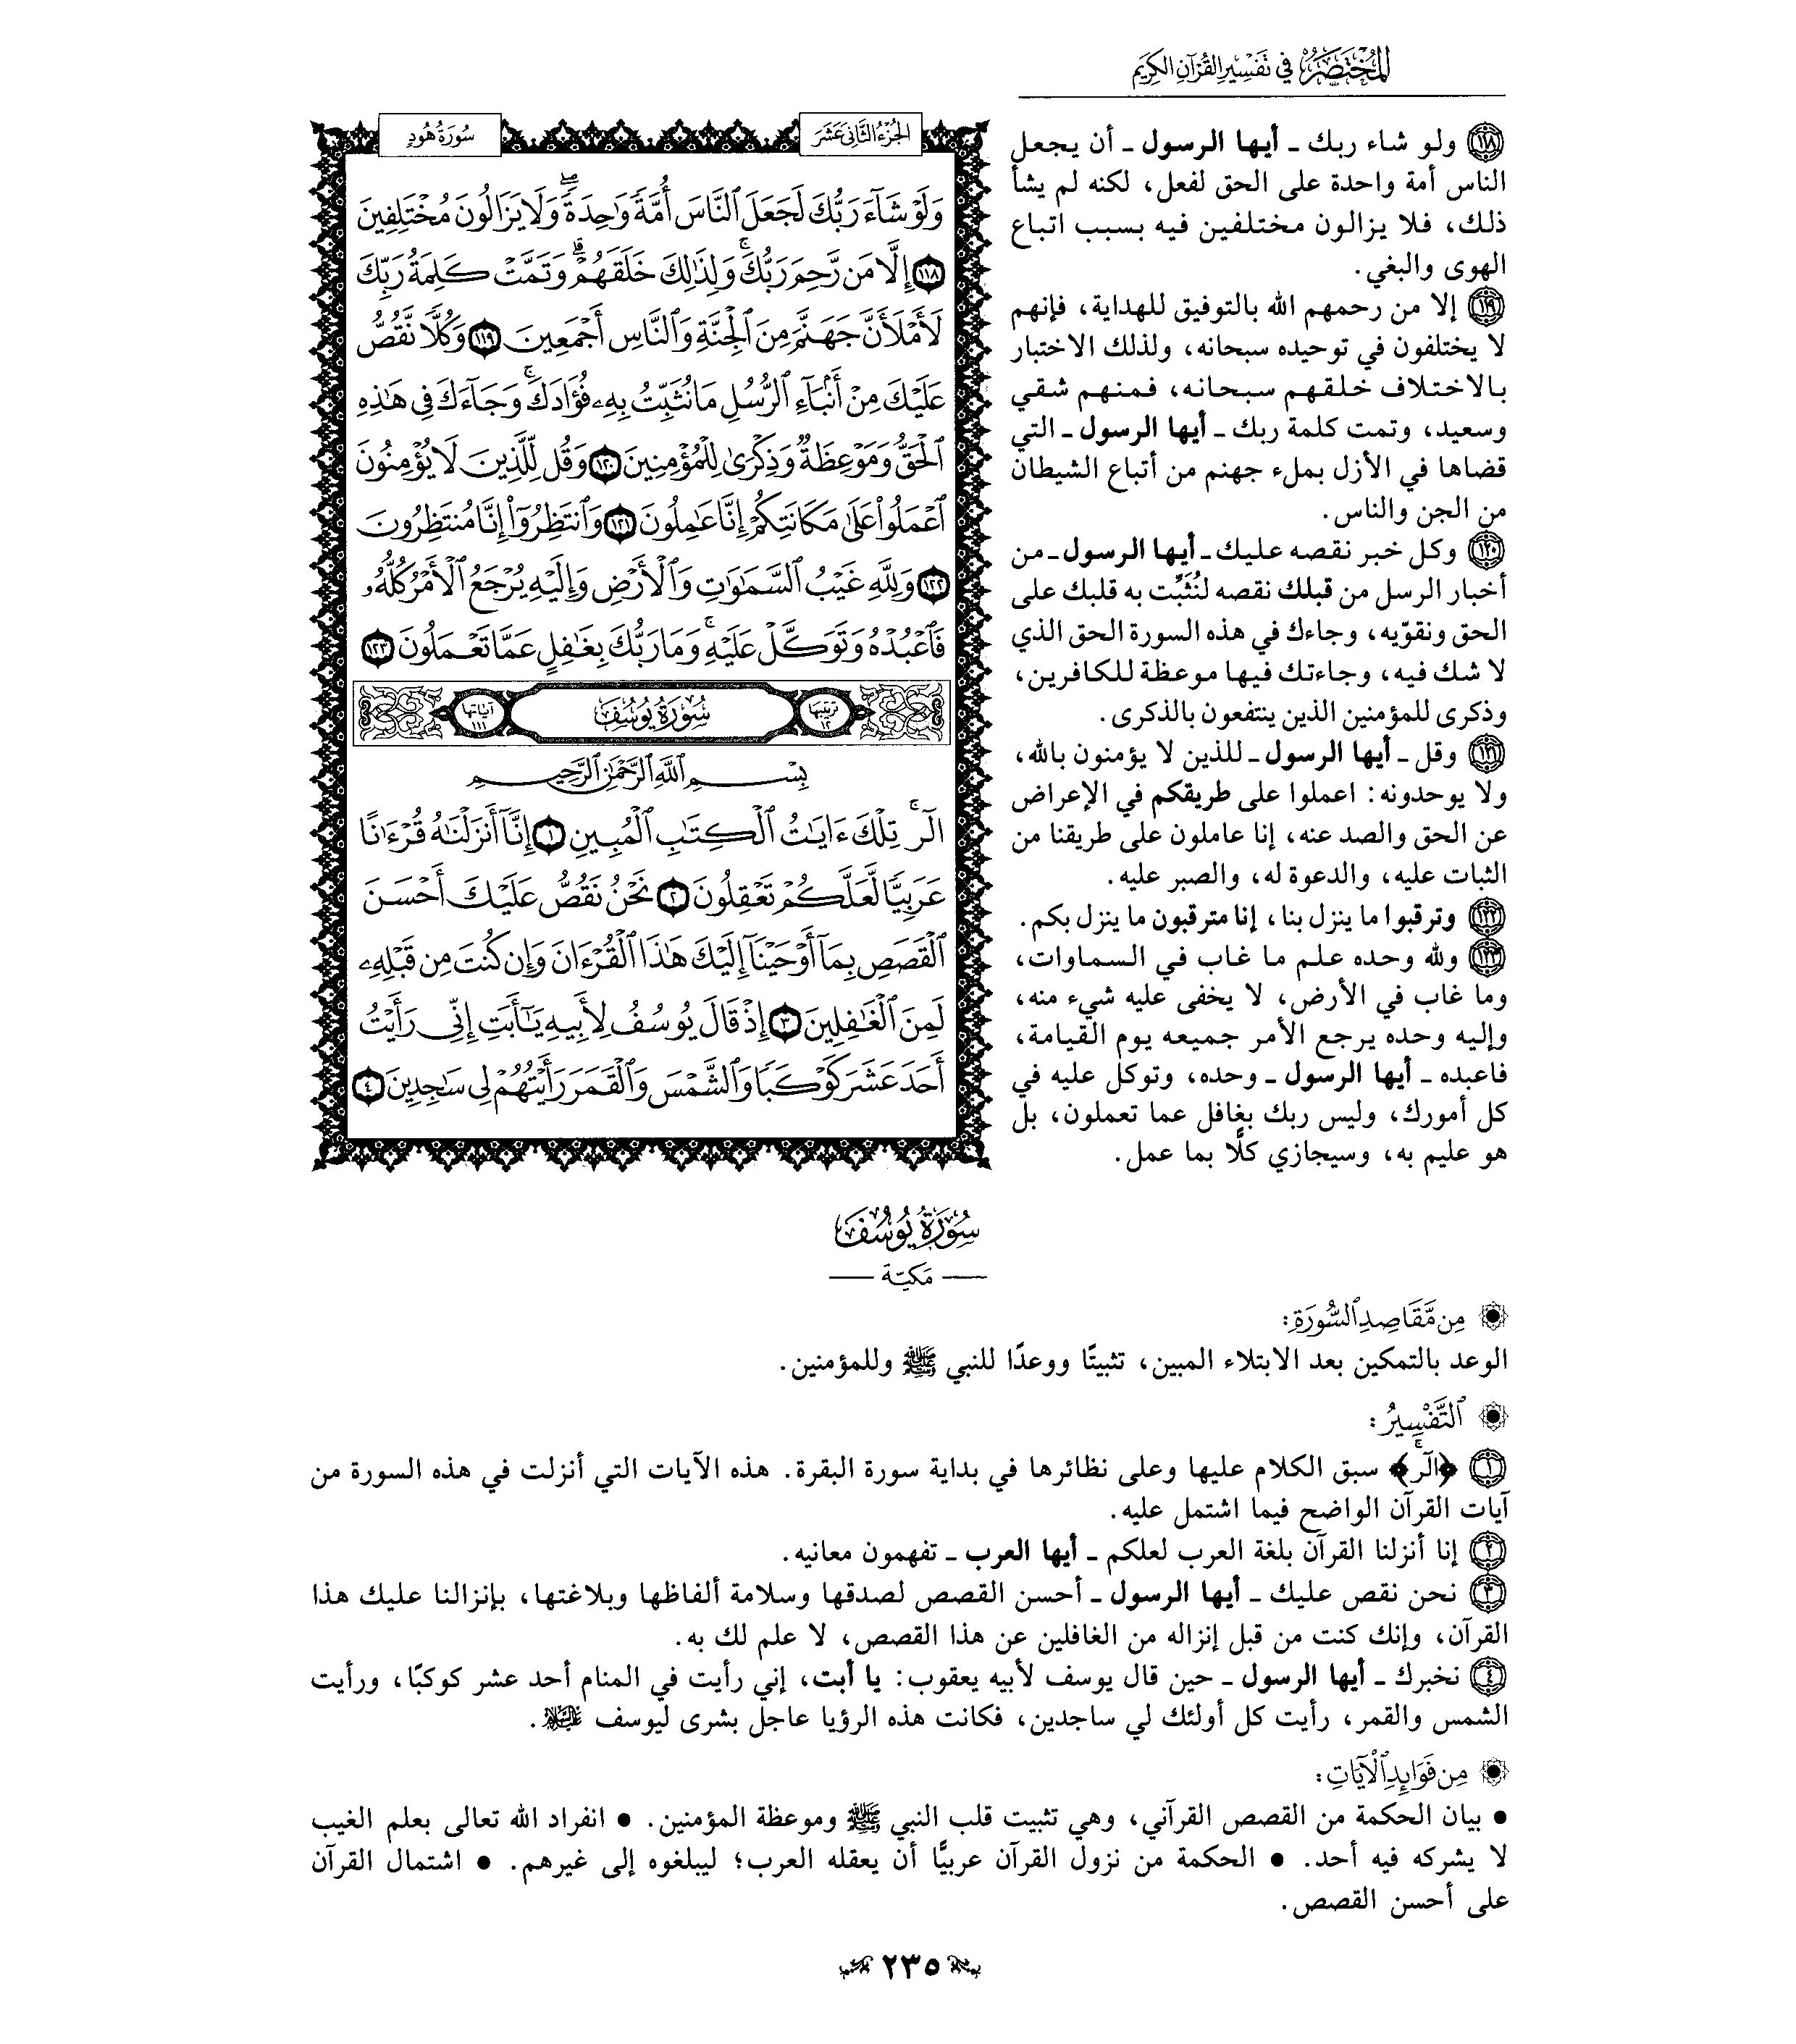 المختصر في تفسير القرآن الكريم
١١٨ ولو شاء ربك ـ أيها الرسول ـ أن يجعل
الناس أمة واحدة على الحق لفعل، لكنه لم يشأ
ذلك، فلا يزالون مختلفين فيه بسبب اتباع
الهوى والبغي.
١١٩ إلا من رحمهم الله بالتوفيق للهداية، فإنهم
لا يختلفون في توحيده سبحانه، ولذلك الاختبار
بالاختلاف خلقهم سبحانه، فمنهم شقي
وسعيد، وتمت كلمة ربك ـ أيها الرسول ـ التي
قضاها في الأزل بملء جهنم من أتباع الشيطان
من الجن والناس.
١٢٠ وكل خبر نقصه عليك ـ أيها الرسول ـ من
أخبار الرسل من قبلك نقصه لنُثَبِّت به قلبك على
الحق ونقوّيه، وجاءك في هذه السورة الحق الذي
لا شك فيه، وجاءتك فيها موعظة للكافرين،
وذكرى للمؤمنين الذين ينتفعون بالذكرى.
١٢١ وقل ـ أيها الرسول ـ للذين لا يؤمنون بالله،
ولا يوحدونه: اعملوا على طريقكم في الإعراض
عن الحق والصد عنه، إنا عاملون على طريقنا من
الثبات عليه، والدعوة له، والصبر عليه.
١٢٢ وترقبوا ما ينزل بنا، إنا مترقبون ما ينزل بكم.
١٢٣ ولله وحده علم ما غاب في السماوات،
وما غاب في الأرض، لا يخفى عليه شيء منه،
وإليه وحده يرجع الأمر جميعه يوم القيامة،
فاعبده ـ أيها الرسول ـ وحده، وتوكل عليه في
كل أمورك، وليس ربك بغافل عما تعملون، بل
هو عليم به، وسيجازي كلًّا بما عمل.
الجُزْءُ الثَّانِي عَشَرَ
سُورَةُ هُودٍ
وَلَوْ شَآءَ رَبُّكَ لَجَعَلَ ٱلنَّاسَ أُمَّةً وَٰحِدَةًۖ وَلَا يَزَالُونَ مُخْتَلِفِينَ
١١٨ إِلَّا مَن رَّحِمَ رَبُّكَۚ وَلِذَٰلِكَ خَلَقَهُمْۗ وَتَمَّتْ كَلِمَةُ رَبِّكَ
لَأَمْلَأَنَّ جَهَنَّمَ مِنَ ٱلْجِنَّةِ وَٱلنَّاسِ أَجْمَعِينَ ١١٩ وَكُلًّا نَّقُصُّ
عَلَيْكَ مِنْ أَنۢبَآءِ ٱلرُّسُلِ مَا نُثَبِّتُ بِهِۦ فُؤَادَكَۚ وَجَآءَكَ فِى هَٰذِهِ
ٱلْحَقُّ وَمَوْعِظَةٌ وَذِكْرَىٰ لِلْمُؤْمِنِينَ ١٢٠ وَقُل لِّلَّذِينَ لَا يُؤْمِنُونَ
ٱعْمَلُوا۟ عَلَىٰ مَكَانَتِكُمْ إِنَّا عَٰمِلُونَ ١٢١ وَٱنتَظِرُوٓا۟ إِنَّا مُنتَظِرُونَ
١٢٢ وَلِلَّهِ غَيْبُ ٱلسَّمَٰوَٰتِ وَٱلْأَرْضِ وَإِلَيْهِ يُرْجَعُ ٱلْأَمْرُ كُلُّهُۥ
فَٱعْبُدْهُ وَتَوَكَّلْ عَلَيْهِۚ وَمَا رَبُّكَ بِغَٰفِلٍ عَمَّا تَعْمَلُونَ ١٢٣
ترتيبها ١٢ سُورَةُ يُوسُفَ آياتها ١١١
بِسْمِ ٱللَّهِ ٱلرَّحْمَٰنِ ٱلرَّحِيمِ
الٓرۚ تِلْكَ ءَايَٰتُ ٱلْكِتَٰبِ ٱلْمُبِينِ ١ إِنَّآ أَنزَلْنَٰهُ قُرْءَٰنًا
عَرَبِيًّا لَّعَلَّكُمْ تَعْقِلُونَ ٢ نَحْنُ نَقُصُّ عَلَيْكَ أَحْسَنَ
ٱلْقَصَصِ بِمَآ أَوْحَيْنَآ إِلَيْكَ هَٰذَا ٱلْقُرْءَانَ وَإِن كُنتَ مِن قَبْلِهِۦ
لَمِنَ ٱلْغَٰفِلِينَ ٣ إِذْ قَالَ يُوسُفُ لِأَبِيهِ يَٰٓأَبَتِ إِنِّى رَأَيْتُ
أَحَدَ عَشَرَ كَوْكَبًا وَٱلشَّمْسَ وَٱلْقَمَرَ رَأَيْتُهُمْ لِى سَٰجِدِينَ ٤
سُورَةُ يُوسُفَ
— مَكيّة —
مِن مَّقَاصِدِ ٱلسُّورَةِ:
الوعد بالتمكين بعد الابتلاء المبين، تثبيتًا ووعدًا للنبي ﷺ وللمؤمنين.
ٱلتَّفْسِيرُ:
١ ﴿الٓرۚ﴾ سبق الكلام عليها وعلى نظائرها في بداية سورة البقرة. هذه الآيات التي أنزلت في هذه السورة من
آيات القرآن الواضح فيما اشتمل عليه.
٢ إنا أنزلنا القرآن بلغة العرب لعلكم ـ أيها العرب ـ تفهمون معانيه.
٣ نحن نقص عليك ـ أيها الرسول ـ أحسن القصص لصدقها وسلامة ألفاظها وبلاغتها، بإنزالنا عليك هذا
القرآن، وإنك كنت من قبل إنزاله من الغافلين عن هذا القصص، لا علم لك به.
٤ نخبرك ـ أيها الرسول ـ حين قال يوسف لأبيه يعقوب: يا أبت، إني رأيت في المنام أحد عشر كوكبًا، ورأيت
الشمس والقمر، رأيت كل أولئك لي ساجدين، فكانت هذه الرؤيا عاجل بشرى ليوسف عليه السلام.
مِن فَوَائِدِ ٱلْآيَاتِ:
• بيان الحكمة من القصص القرآني، وهي تثبيت قلب النبي ﷺ وموعظة المؤمنين. • انفراد الله تعالى بعلم الغيب
لا يشركه فيه أحد. • الحكمة من نزول القرآن عربيًّا أن يعقله العرب؛ ليبلغوه إلى غيرهم. • اشتمال القرآن
على أحسن القصص.
٢٣٥